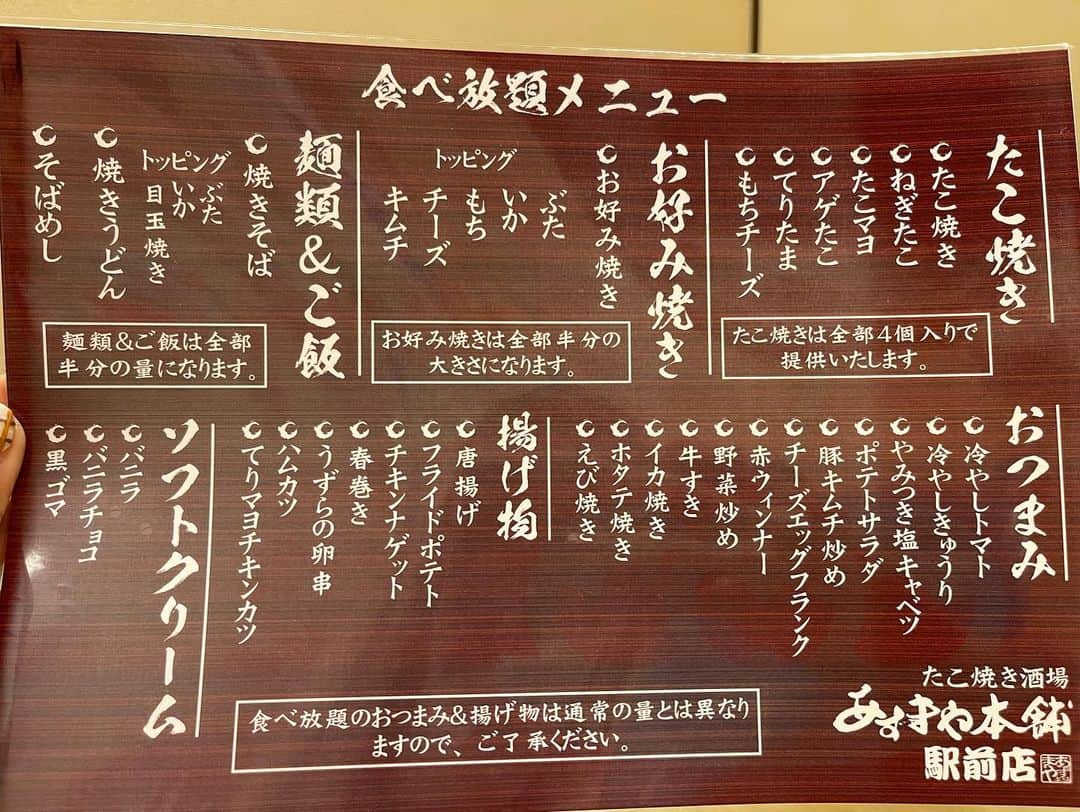 食べ放題メニュー
たこ焼き
たこ焼き
ねぎたこ
たこマヨ
アゲたこ
てりたま
もちチーズ
たこ焼きは全部4個入りで
提供いたします。
お好み焼き
お好み焼き
トッピング
ぶた
いか
もち
チーズ
キムチ
お好み焼きは全部半分の
大きさになります。
麺類&ご飯
焼きそば
トッピング
ぶた
いか
目玉焼き
焼きうどん
そばめし
麺類&ご飯は全部
半分の量になります。
おつまみ
冷やしトマト
冷やしきゅうり
やみつき塩キャベツ
ポテトサラダ
豚キムチ炒め
チーズエッグフランク
赤ウィンナー
野菜炒め
牛すき
イカ焼き
ホタテ焼き
えび焼き
揚げ物
唐揚げ
フライドポテト
チキンナゲット
春巻き
うずらの卵串
ハムカツ
てりマヨチキンカツ
ソフトクリーム
バニラ
バニラチョコ
黒ゴマ
食べ放題のおつまみ&揚げ物は通常の量とは異なり
ますので、ご了承ください。
たこ焼き酒場
あずまや本舗
駅前店